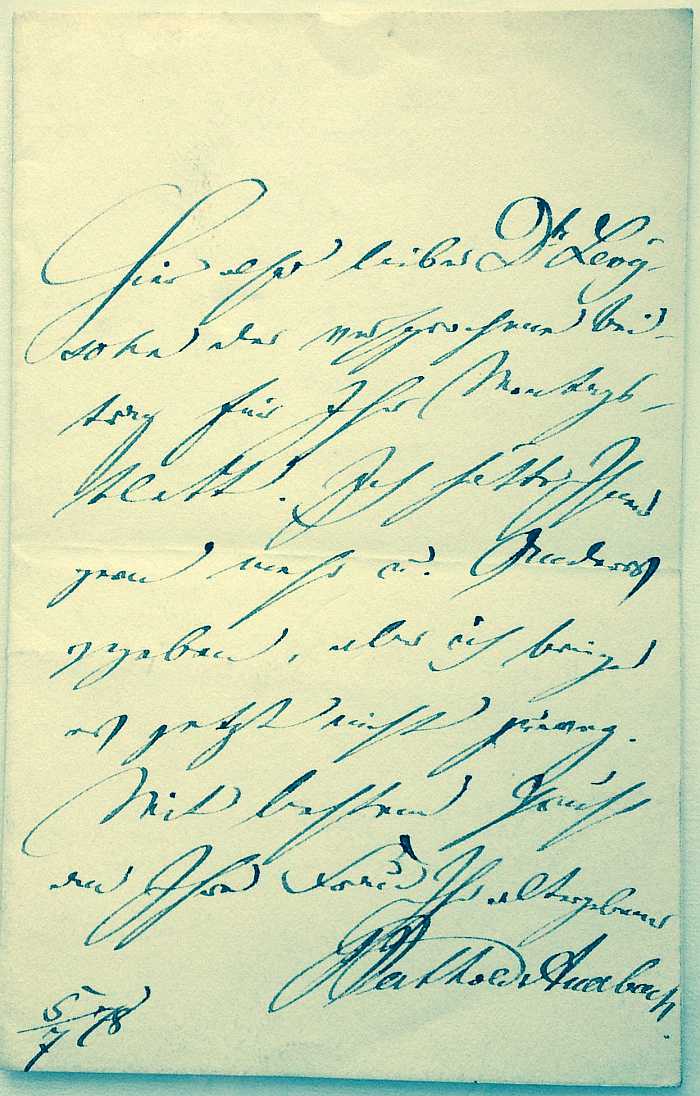 Hier also lieber Dr Levy-
sohn der versprochene Bei-
trag für Ihr Montags-
blatt. Ich hätte Ihnen
gern mehr u. Anderes
gegeben, aber ich bringe
es jetzt nicht zuweg.
Mit bestem Gruß
an Ihre Frau Ihr altergebener
Berthold Auerbach.
5/7 78